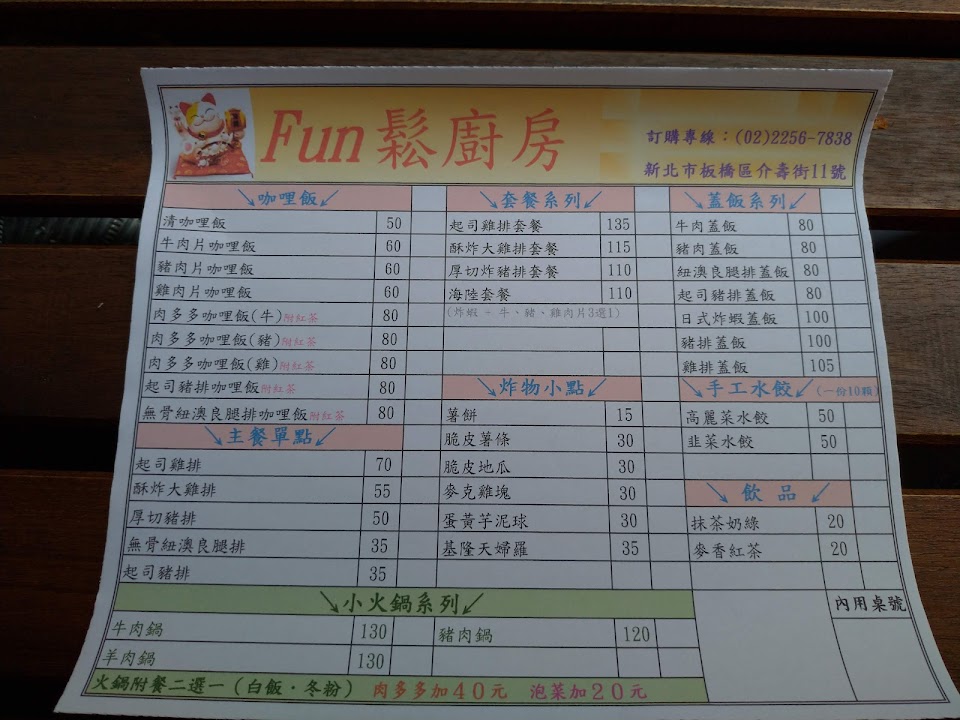 Fun 鬆廚房
訂購專線：(02)2256-7838
新北市板橋區介壽街11號
↘咖哩飯↙
清咖哩飯 50
牛肉片咖哩飯 60
豬肉片咖哩飯 60
雞肉片咖哩飯 60
肉多多咖哩飯(牛)附紅茶 80
肉多多咖哩飯(豬)附紅茶 80
肉多多咖哩飯(雞)附紅茶 80
起司豬排咖哩飯附紅茶 80
無骨紐澳良腿排咖哩飯附紅茶 80
↘主餐單點↙
起司雞排 70
酥炸大雞排 55
厚切豬排 50
無骨紐澳良腿排 35
起司豬排 35
↘套餐系列↙
起司雞排套餐 135
酥炸大雞排套餐 115
厚切炸豬排套餐 110
海陸套餐 110
(炸蝦 + 牛、豬、雞肉片3選1)
↘炸物小點↙
薯餅 15
脆皮薯條 30
脆皮地瓜 30
麥克雞塊 30
蛋黃芋泥球 30
基隆天婦羅 35
↘蓋飯系列↙
牛肉蓋飯 80
豬肉蓋飯 80
紐澳良腿排蓋飯 80
起司豬排蓋飯 80
日式炸蝦蓋飯 100
豬排蓋飯 100
雞排蓋飯 105
↘手工水餃↙(一份10顆)
高麗菜水餃 50
韭菜水餃 50
↘飲品↙
抹茶奶綠 20
麥香紅茶 20
內用桌號
↘小火鍋系列↙
牛肉鍋 130 豬肉鍋 120
羊肉鍋 130
火鍋附餐二選一（白飯．冬粉） 肉多多加40元 泡菜加20元